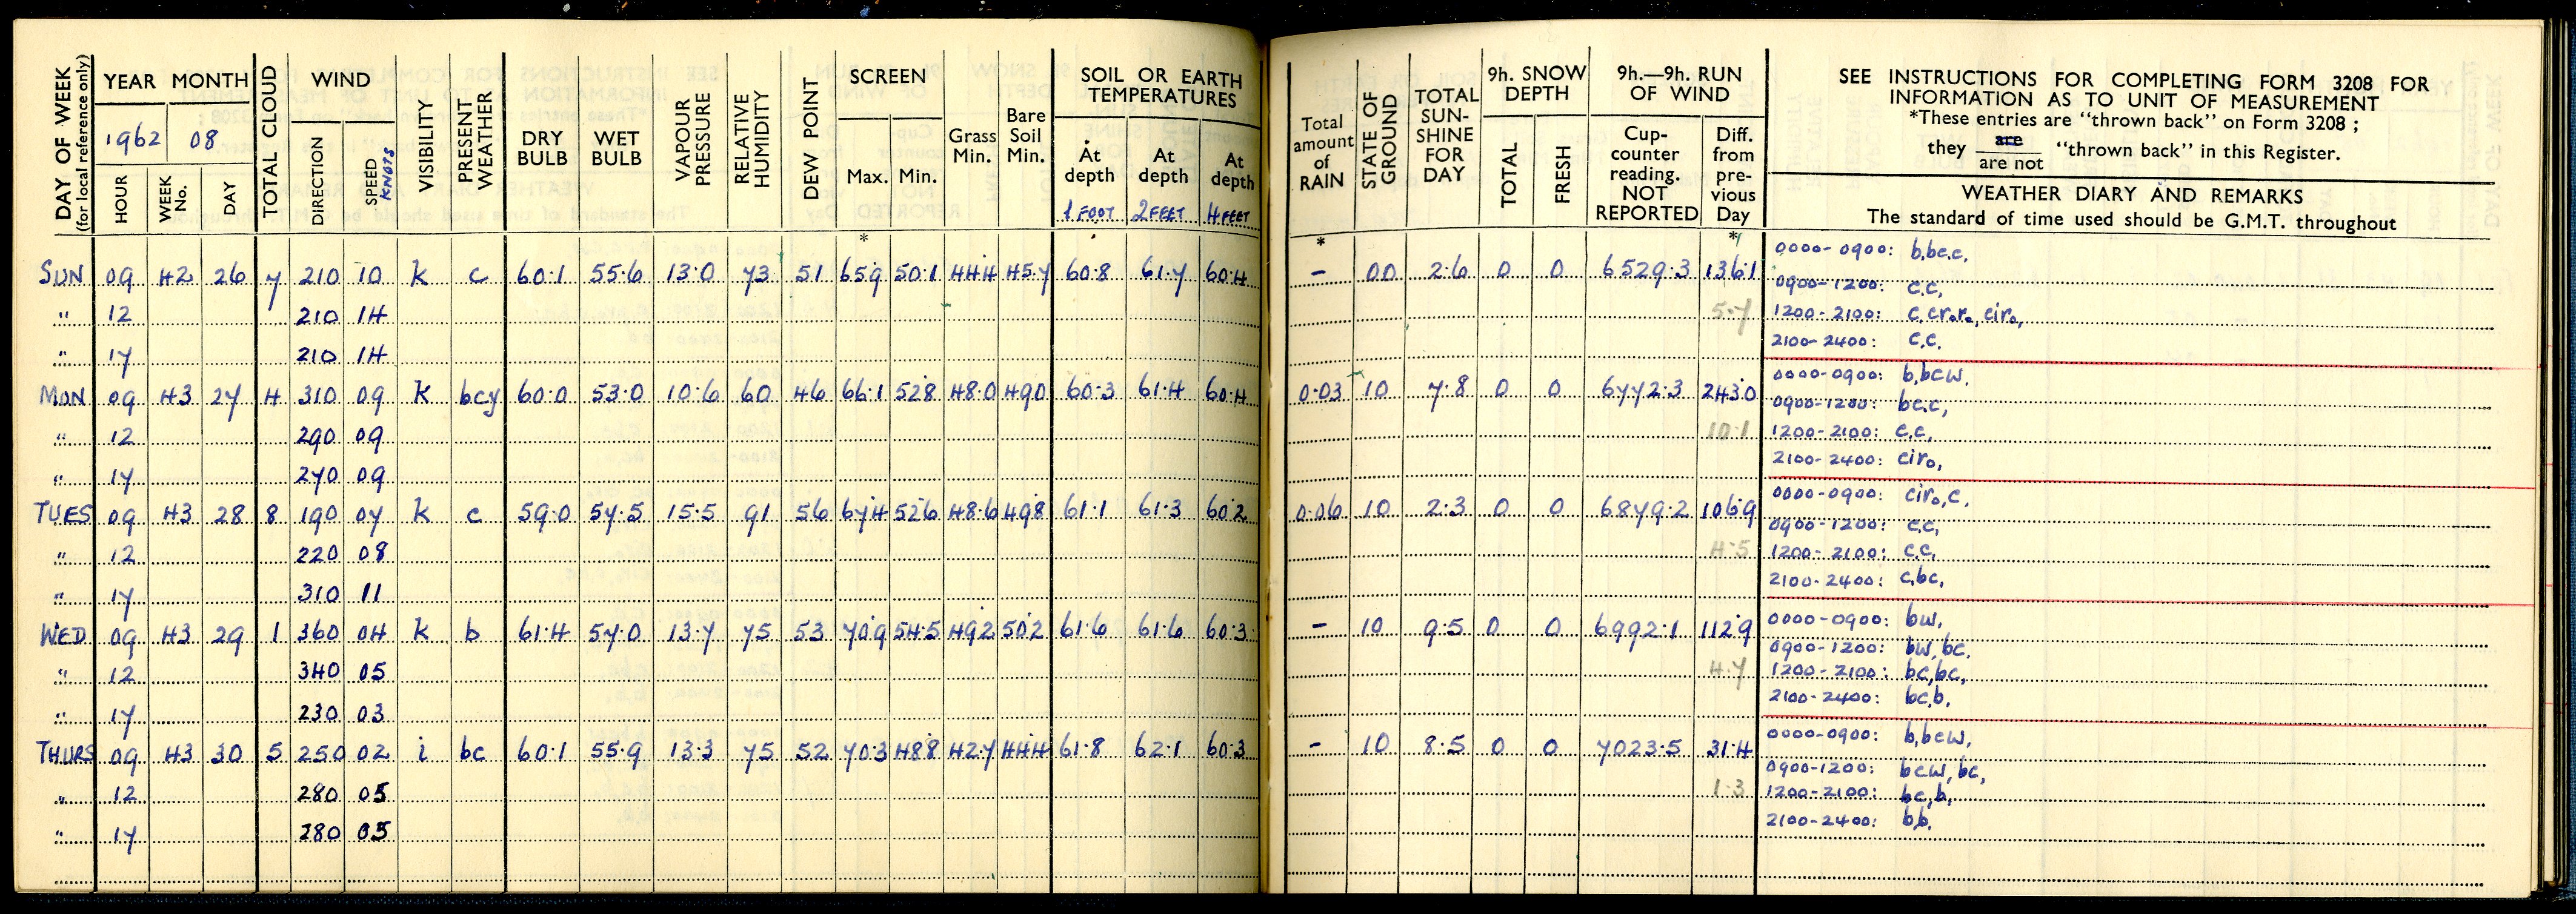 DAY OF WEEK (for local reference only)
YEAR MONTH
1962 08
HOUR WEEK No. DAY
TOTAL CLOUD
WIND
DIRECTION SPEED KNOTS
VISIBILITY
PRESENT WEATHER
DRY BULB WET BULB
VAPOUR PRESSURE
RELATIVE HUMIDITY
DEW POINT
SCREEN
Max. Min.
Grass Min.
Bare Soil Min.
SOIL OR EARTH TEMPERATURES
At depth At depth At depth
1 FOOT 2 FEET 4 FEET
Total amount of RAIN
STATE OF GROUND
TOTAL SUN-SHINE FOR DAY
9h. SNOW DEPTH
TOTAL FRESH
9h.—9h. RUN OF WIND
Cup-counter reading. NOT REPORTED
Diff. from pre-vious Day
SEE INSTRUCTIONS FOR COMPLETING FORM 3208 FOR
INFORMATION AS TO UNIT OF MEASUREMENT
*These entries are "thrown back" on Form 3208 ;
they are / are not "thrown back" in this Register.
WEATHER DIARY AND REMARKS
The standard of time used should be G.M.T. throughout
* * *
SUN 09 42 26 7 210 10 k c 60.1 55.6 13.0 73 51 65.9 50.1 44.4 45.7 60.8 61.7 60.4 - 00 2.6 0 0 6529.3 136.1 0000-0900: b,bc,c,
0900-1200: c,c,
" 12 210 14 5.7 1200-2100: c,cr₀r₀, cir₀,
" 17 210 14 2100-2400: c,c.
MON 09 43 27 4 310 09 k bcy 60.0 53.0 10.6 60 46 66.1 52.8 48.0 49.0 60.3 61.4 60.4 0.03 10 7.8 0 0 6772.3 243.0 0000-0900: b,bcw,
0900-1200: bc,c,
" 12 290 09 10.1 1200-2100: c,c,
" 17 270 09 2100-2400: cir₀,
TUES 09 43 28 8 190 07 k c 59.0 57.5 15.5 91 56 67.4 52.6 48.6 49.8 61.1 61.3 60.2 0.06 10 2.3 0 0 6879.2 106.9 0000-0900: cir₀,c,
0900-1200: c,c,
" 12 220 08 4.5 1200-2100: c,c,
" 17 310 11 2100-2400: c,bc,
WED 09 43 29 1 360 04 k b 61.4 57.0 13.7 75 53 70.9 54.5 49.2 50.2 61.6 61.6 60.3 - 10 9.5 0 0 6992.1 112.9 0000-0900: bw,
0900-1200: bw, bc,
" 12 340 05 4.7 1200-2100: bc,bc,
" 17 230 03 2100-2400: bc,b,
THURS 09 43 30 5 250 02 i bc 60.1 55.9 13.3 75 52 70.3 48.8 42.7 44.4 61.8 62.1 60.3 - 10 8.5 0 0 7023.5 31.4 0000-0900: b,bcw,
0900-1200: bcw, bc,
" 12 280 05 1.3 1200-2100: bc,b,
" 17 280 05 2100-2400: b,b.